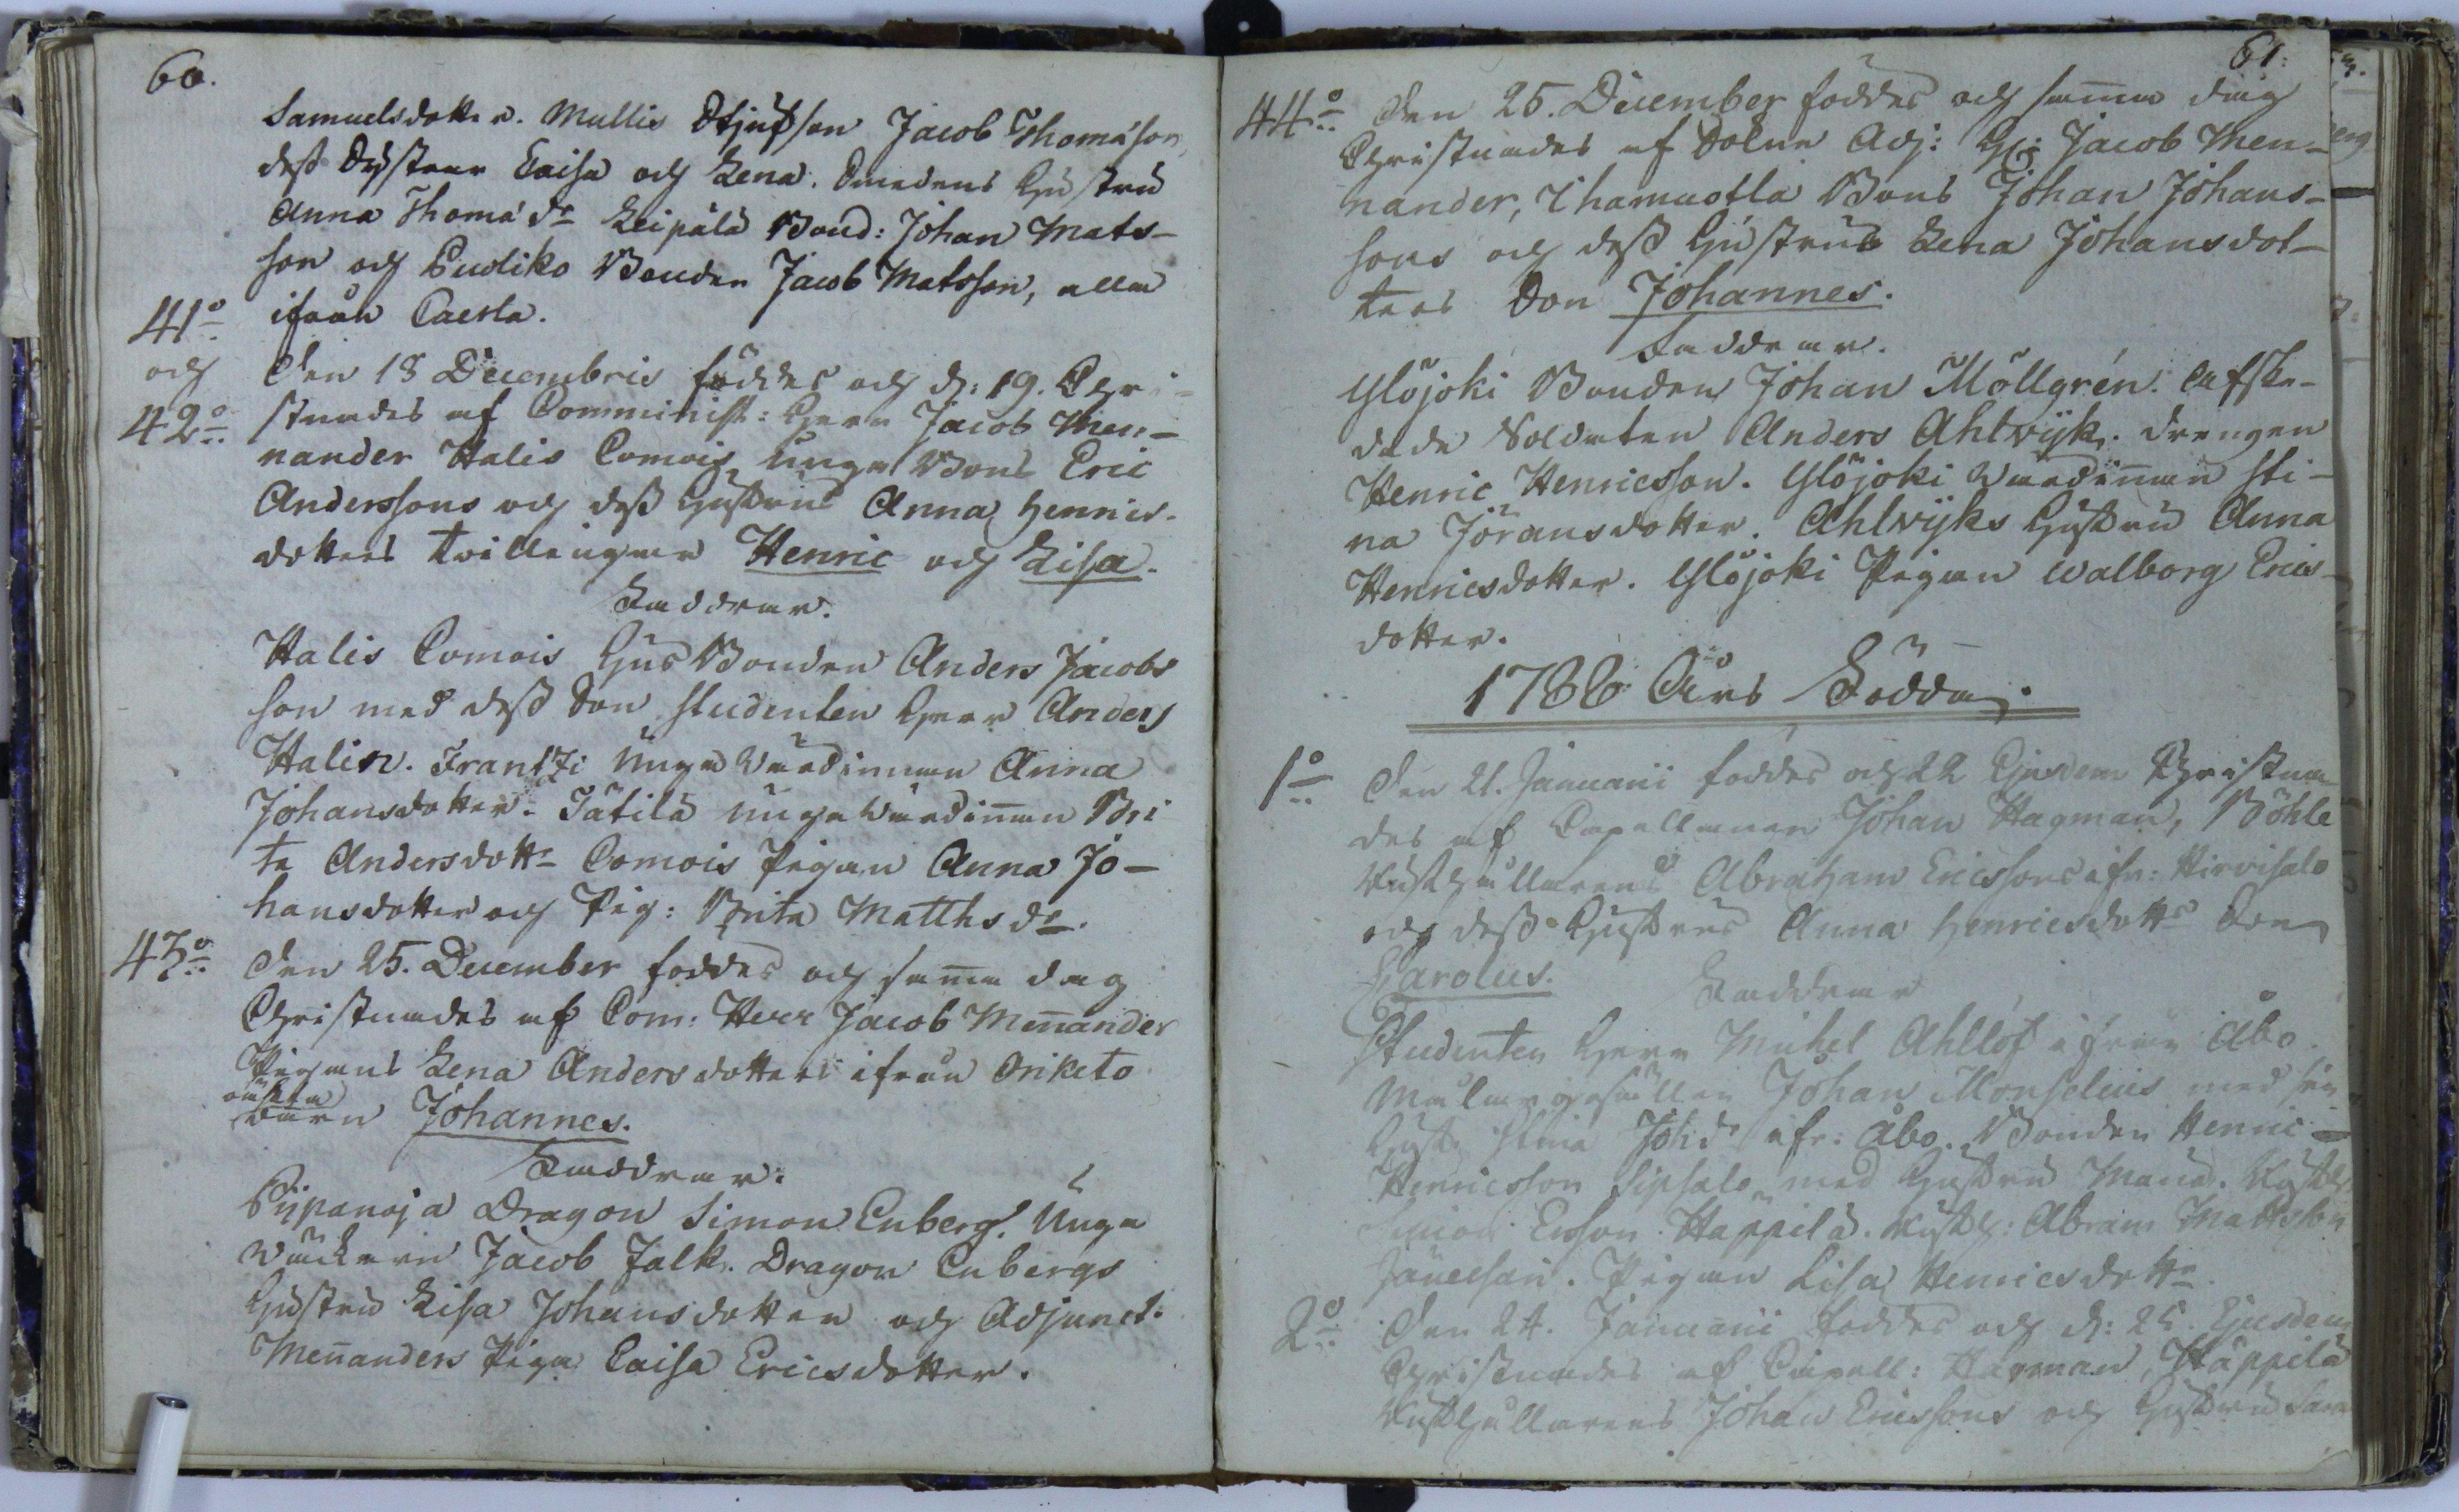 60.
Samuelsdotter. Mullis Stjufson Jacob Thomæson,
dess Systrar Caisa och Lena. Smedens Hustru
Anna Thomæ dr Leipälä Bond: Johan Mats-
son och Pudiko Bonden Jacob Matsson, alla
ifrån Caerla.
41o
och
42o
Den 18 Decembris föddes och d: 19. Chri-
stnades af Comminist: Herr Jacob Men-
nander Halis Comois unga Bond Eric
Anderssons och dess Hustrus Anna Henrics-
dotters tvillingar Henric och Lisa.
Faddrar.
Halis Comois Husbonden Anders Jacobs
son med dess Son Studenten Herr Anders
Halin. Frantzi Unga Värdinnan Anna
Johansdotter. Jätilä unga Värdinnan Bri
ta Andersdottr Comois Pigan Anna Jo-
hansdotter och Pig: Brita Matths dr.
43o Den 25. December föddes och samma dag
Christnades af Com: Herr Jacob Mennander
Pigans Lena Andersdotters ifrån Oriketo
oäkta
barn Johannes.
Faddrar.
Pijpanoja Dragon Simon Enberg. Unga
Jacob Falk. Dragon Enbergs
Hustru Lisa Johansdotter och Adjunct.
Mennanders Piga Caisa Ericsdotter.
61.
44o Den 25. December föddes och samma dag
Christnades af Adj: Hr: Jacob Men-
nander, Ihamuotla Bond Johan Johans-
sons och dess Hustrus Lena Johansdot-
ters Son Johannes.
Faddrar.
Ylöjoki Bonden Johan Möllgrén. Afske-
dade Soldaten Anders Ahlvijk. Drengen
Henric Henricsson. Ylöjoki Värdinnan Sti-
na Jöransdotter. Ahlvijks Hustru Anna
Henricsdotter. Ylöjoki Pigan Walborg Erics-
dotter.
1788 Års Födda.
1o Den 21. Januarii föddes och 22 Ejusdem Christna
des af Capellanen Johan Hagman, Böhle
Rusthållarens Abraham Ericssons ifr: Hirvisalo
och dess Hustrus Anna Henricsdottr Son
Carolus.
Faddrar
Studenten Herr Michel Ahllöf ifrån Åbo.
Målargesällen Johan Monselius med sin
Hust: Stina Joh dr ifr: Åbo. Bonden Henric
Henricsson Sipsalo med Hustru Maria. Rusth:
Ersson Happilä. Rusth: Abram Mattsson
Pigan Lisa Henricsdottr.
2o Den 24. Januarii föddes och d: 25. Ejusdem
Christnades af Capell: Hagman, Häppilä
Rusthållarens Johan Ericssons och Hustrus Sara